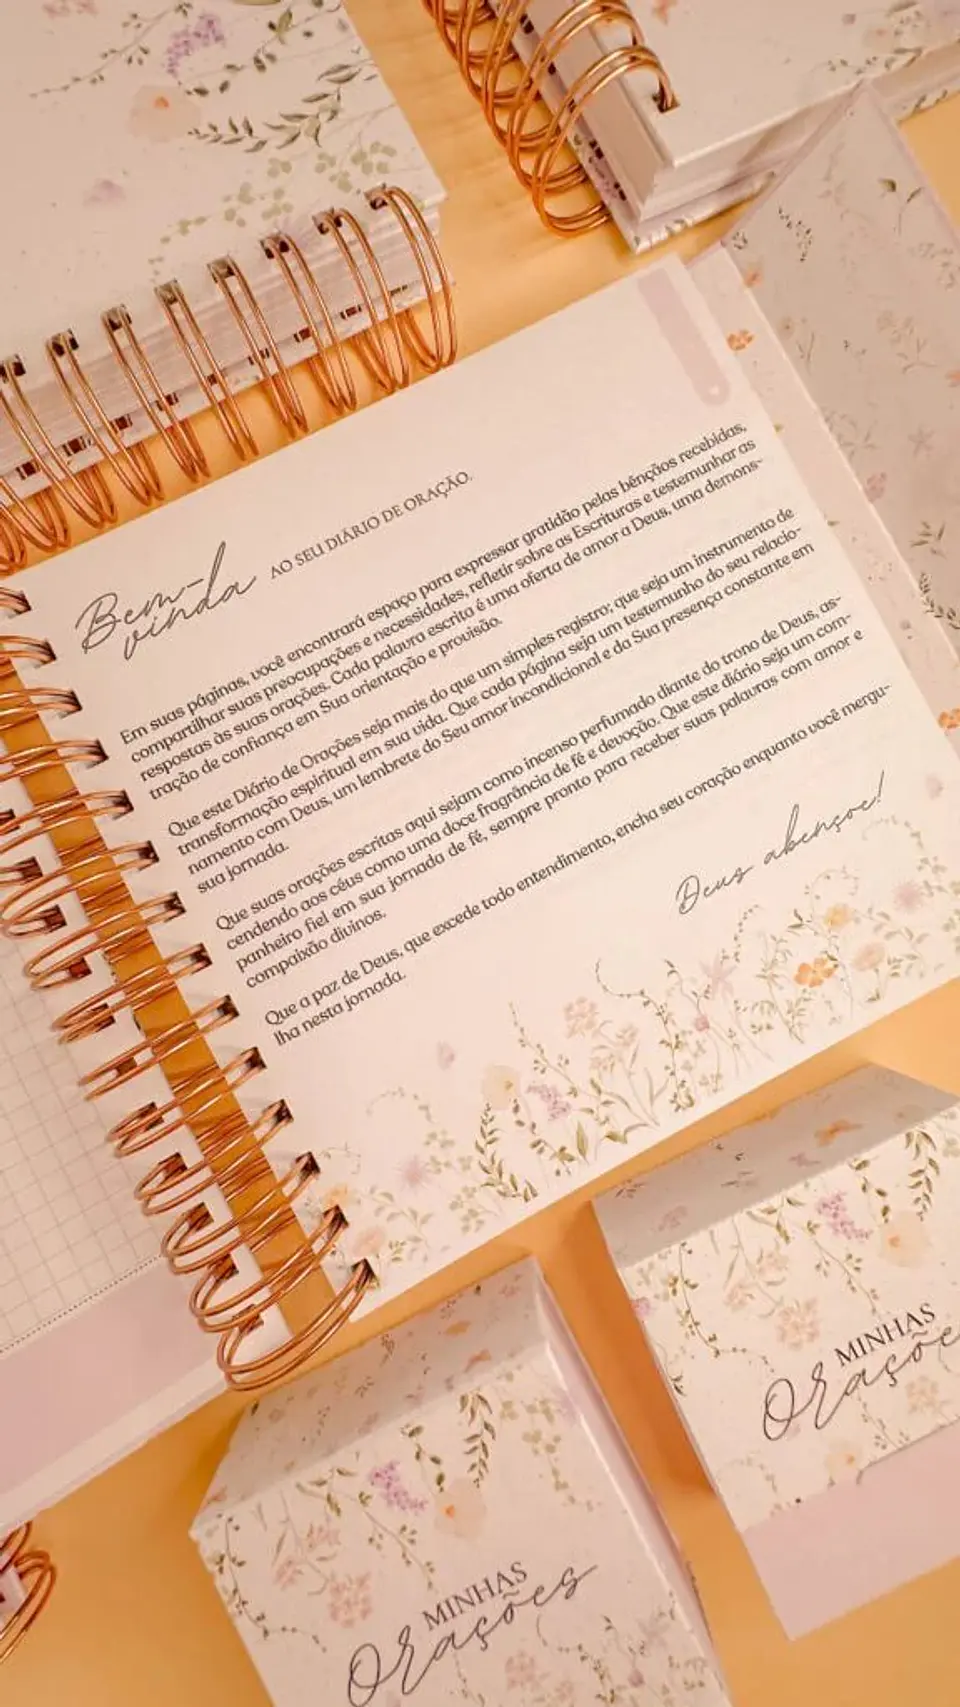 Bem-
vinda AO SEU DIÁRIO DE ORAÇÃO.
Em suas páginas, você encontrará espaço para expressar gratidão pelas bênçãos recebidas,
compartilhar suas preocupações e necessidades, refletir sobre as Escrituras e testemunhar as
respostas às suas orações. Cada palavra escrita é uma oferta de amor a Deus, uma demons-
tração de confiança em Sua orientação e provisão.
Que este Diário de Orações seja mais do que um simples registro; que seja um instrumento de
transformação espiritual em sua vida. Que cada página seja um testemunho do seu relacio-
namento com Deus, um lembrete do Seu amor incondicional e da Sua presença constante em
sua jornada.
Que suas orações escritas aqui sejam como incenso perfumado diante do trono de Deus, as-
cendendo aos céus como uma doce fragrância de fé e devoção. Que este diário seja um com-
panheiro fiel em sua jornada de fé, sempre pronto para receber suas palavras com amor e
compaixão divinos.
Que a paz de Deus, que excede todo entendimento, encha seu coração enquanto você mergu-
lha nesta jornada.
Deus abençoe!
MINHAS
Oraçõe
MINHAS
Orações